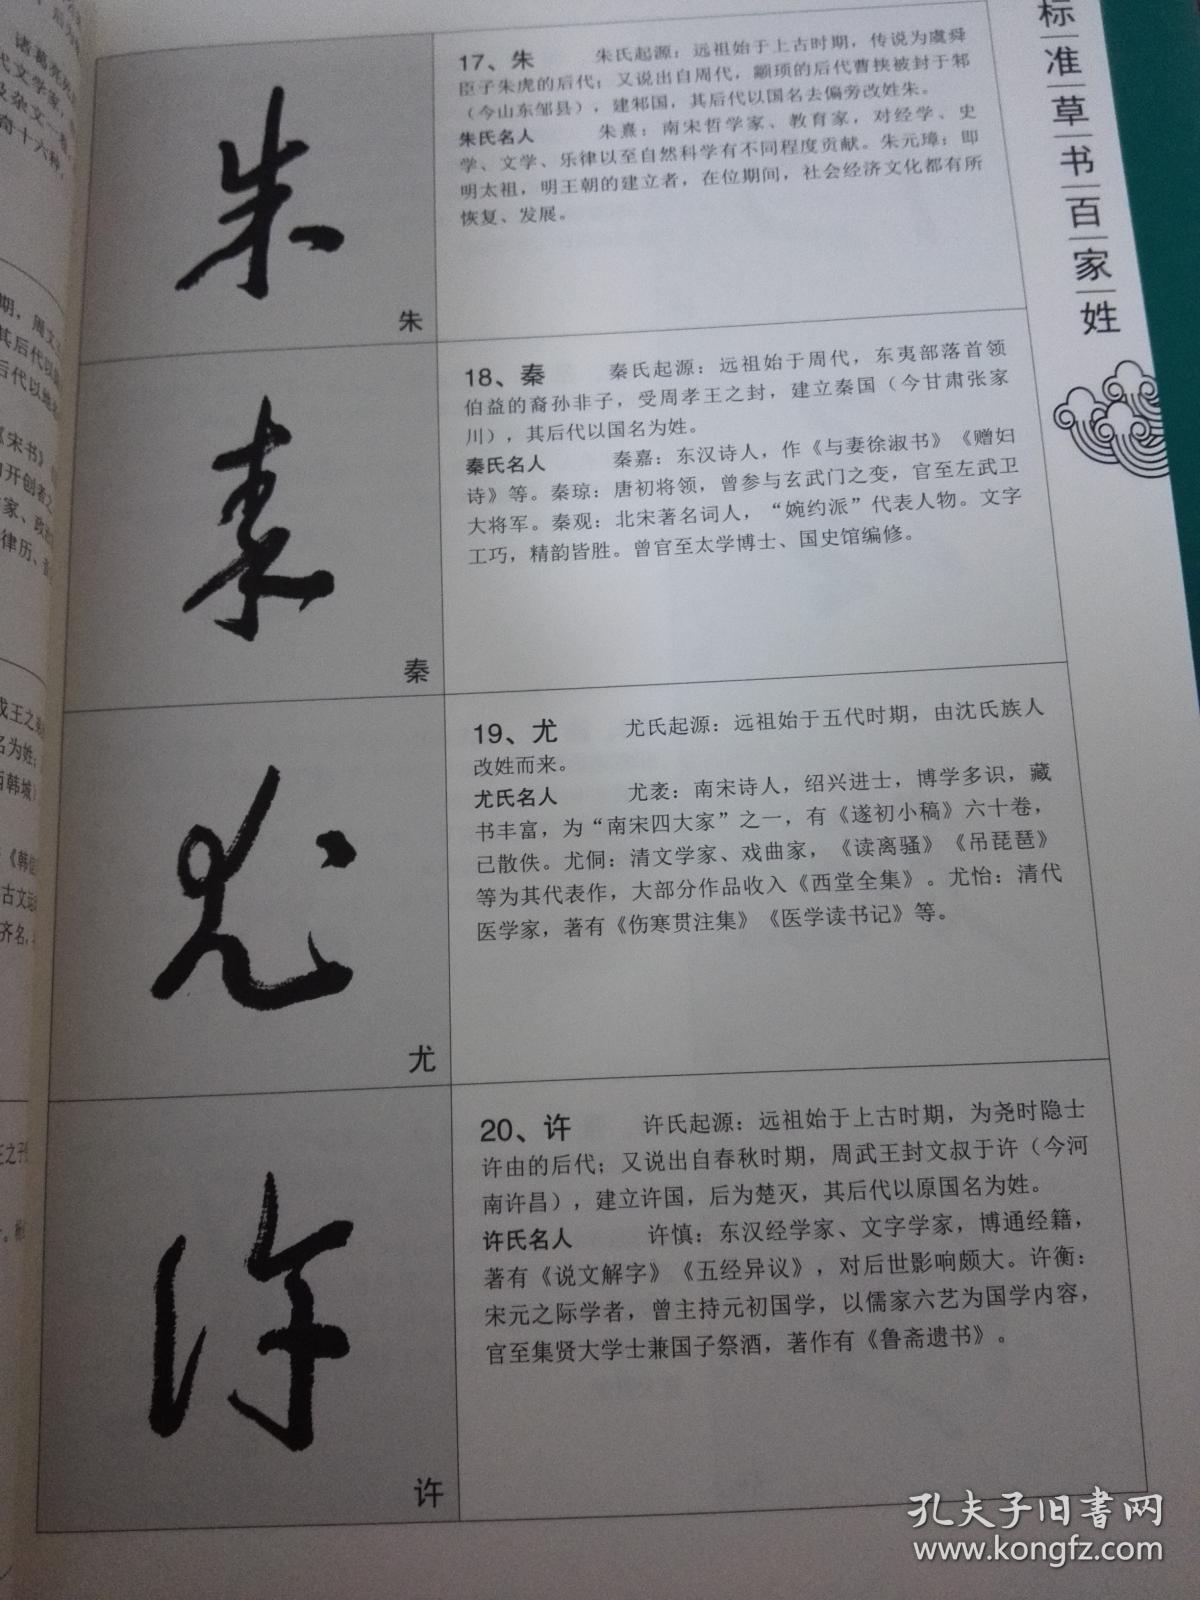 标准草书百家姓
17、朱 朱氏起源：远祖始于上古时期，传说为虞舜
臣子朱虎的后代；又说出自周代，颛顼的后代曹挟被封于邾
（今山东邹县），建邾国，其后代以国名去偏旁改姓朱。
朱氏名人 朱熹：南宋哲学家、教育家，对经学、史
学、文学、乐律以至自然科学有不同程度贡献。朱元璋：即
明太祖，明王朝的建立者，在位期间，社会经济文化都有所
恢复、发展。
朱
朱
18、秦 秦氏起源：远祖始于周代，东夷部落首领
伯益的裔孙非子，受周孝王之封，建立秦国（今甘肃张家
川），其后代以国名为姓。
秦氏名人 秦嘉：东汉诗人，作《与妻徐淑书》《赠妇
诗》等。秦琼：唐初将领，曾参与玄武门之变，官至左武卫
大将军。秦观：北宋著名词人，“婉约派”代表人物。文字
工巧，精韵皆胜。曾官至太学博士、国史馆编修。
秦
秦
19、尤 尤氏起源：远祖始于五代时期，由沈氏族人
改姓而来。
尤氏名人 尤袤：南宋诗人，绍兴进士，博学多识，藏
书丰富，为“南宋四大家”之一，有《遂初小稿》六十卷，
已散佚。尤侗：清文学家、戏曲家，《读离骚》《吊琵琶》
等为其代表作，大部分作品收入《西堂全集》。尤怡：清代
医学家，著有《伤寒贯注集》《医学读书记》等。
尤
尤
20、许 许氏起源：远祖始于上古时期，为尧时隐士
许由的后代；又说出自春秋时期，周武王封文叔于许（今河
南许昌），建立许国，后为楚灭，其后代以原国名为姓。
许氏名人 许慎：东汉经学家、文字学家，博通经籍，
著有《说文解字》《五经异议》，对后世影响颇大。许衡：
宋元之际学者，曾主持元初国学，以儒家六艺为国学内容，
官至集贤大学士兼国子祭酒，著作有《鲁斋遗书》。
许
许
诸葛亮
代文学家，
及杂文一卷
奇十六种
期，周文王
其后代以
后代以地
《宋书》
的开创者之
家、政治
律历、
成王之弟
名为姓；
西韩城）
《韩信
古文运
齐名，
王之子
孔夫子旧书网
www.kongfz.com